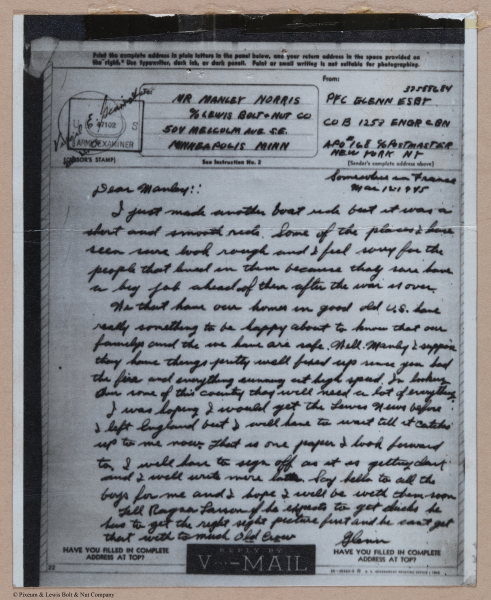 Print the complete address in plain letters in the panel below, and your return address in the space provided on
the right. Use typewriter, dark ink, or dark pencil. Faint or small writing is not suitable for photographing.
From:
MR MANLEY NORRIS
% LEWIS BOLT & NUT CO
504 MALCOLM AVE S.E.
MINNEAPOLIS MINN
PFC GLENN ESBY
CO B 1252 ENGR CBN
APO #168 % POSTMASTER
NEW YORK NY
U S
ARMY EXAMINER
(CENSOR'S STAMP)
See Instruction No. 2
(Sender's complete address above)
Somewhere in France
Mar 12 1945
Dear Manley:
I just made another boat ride but it was a
short and smooth ride. Some of the places I have
seen sure look rough and I feel sorry for the
people that lived in them because they sure have
a big job ahead of them after the war is over.
We that have our homes in good old U.S. have
really something to be happy about to know that our
familys and the we have are safe. Well Manley I suppose
they have things pretty well fixed up since you had
the fire and everything running at high speed. In looking
over some of this country they will need a lot of everything
I was hoping I would get the Lewis News before
I left England but I will have to wait till it catches
up to me now. That is one paper I look forward
to. I will have to sign off as it is getting dark
and I will write more later. Say hello to all the
boys for me and I hope I will be with them soon
Tell Ragnar Larson if he expects to get ducks he
has to get the right sight picture first and he can't get
that with to much Old Crow
Glenn
HAVE YOU FILLED IN COMPLETE
ADDRESS AT TOP?
REPLY BY
V···—MAIL
HAVE YOU FILLED IN COMPLETE
ADDRESS AT TOP?
© Pixeum & Lewis Bolt & Nut Company